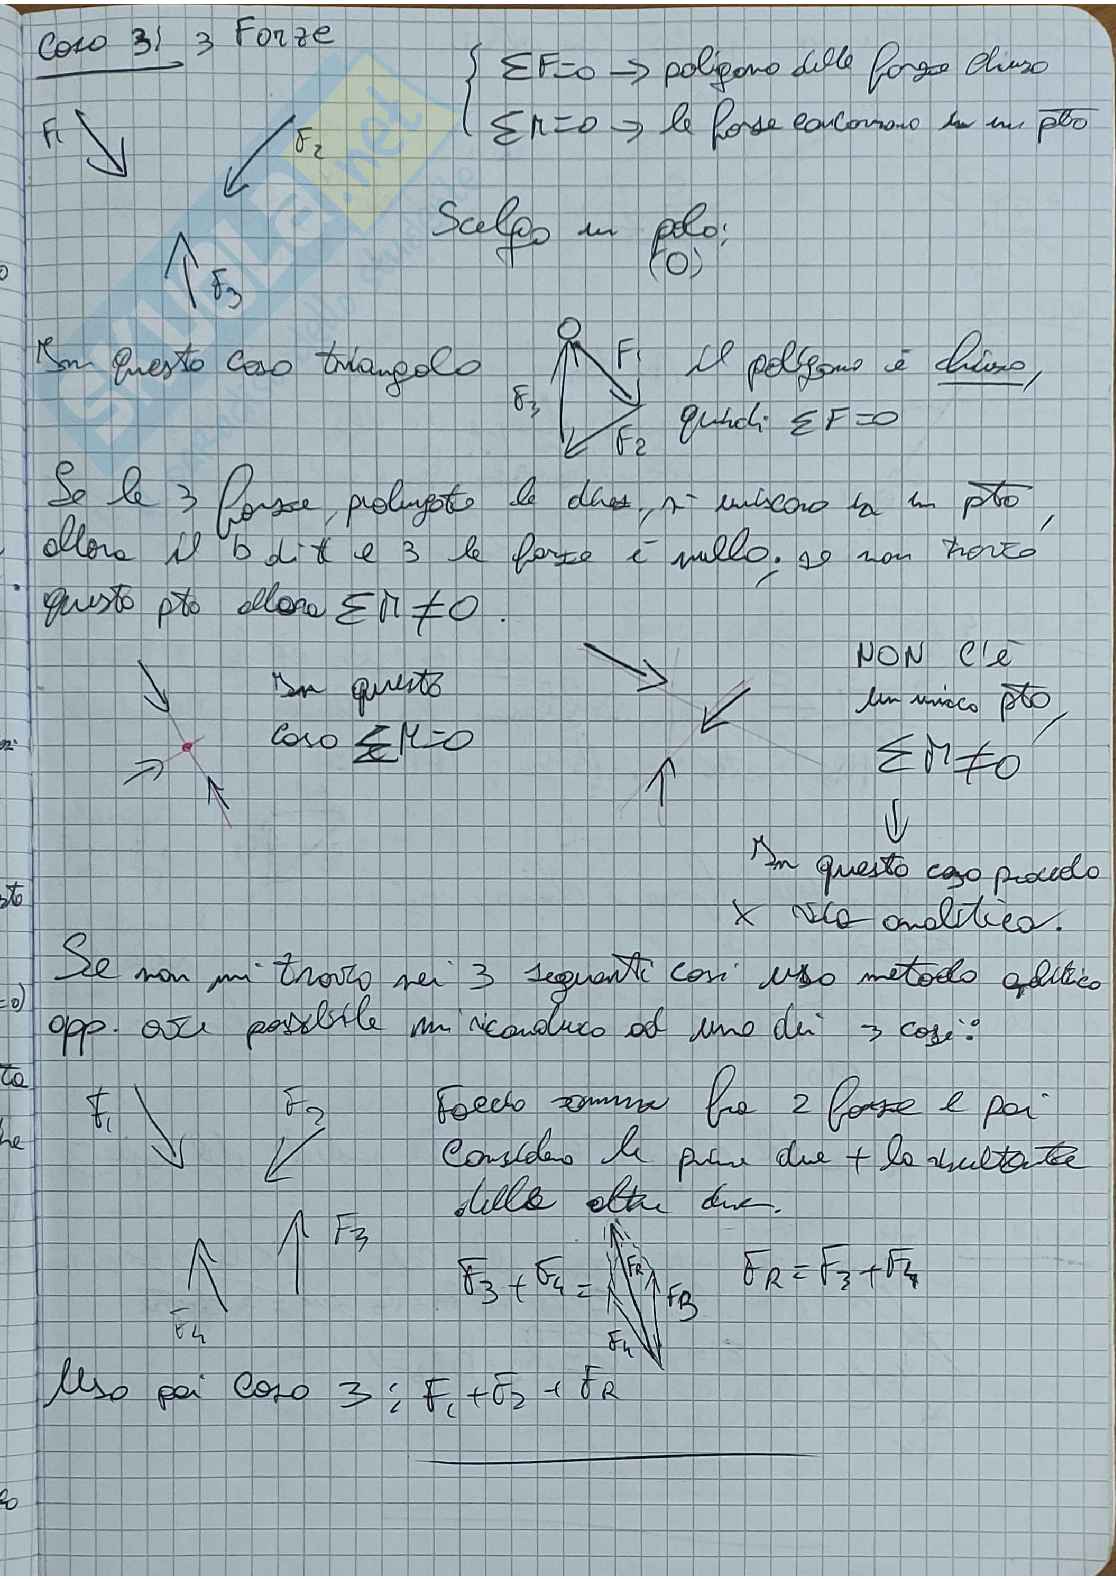 Caso 3: 3 Forze
ΣF=0 → poligono delle forze chiuso
ΣM=0 → le forze concorrono in un pto
F1
F2
F3
Scelgo un polo:
(O)
In questo caso triangolo
O
F1
F2
F3
il poligono è chiuso,
quindi ΣF=0
Se le 3 forze, prolungate le, si uniscono in un pto,
allora il b di t e 3 le forze è nullo. se non trovo
questo pto allora ΣM≠0.
In questo
caso ΣM=0
NON c'è
un unico pto,
ΣM≠0
⇓
In questo caso procedo
x via analitica.
Se non mi trovo nei 3 seguenti casi uso metodo analitico
opp. ove possibile mi riconduco ad uno dei 3 casi:
F1
F2
F3
F4
Faccio somma fra 2 forze e poi
considero le prime due + la risultante
delle altre due.
F3 + F4 =
FR
F3
F4
FR = F3 + F4
Uso poi caso 3: F1 + F2 + FR
SKUOLA.net